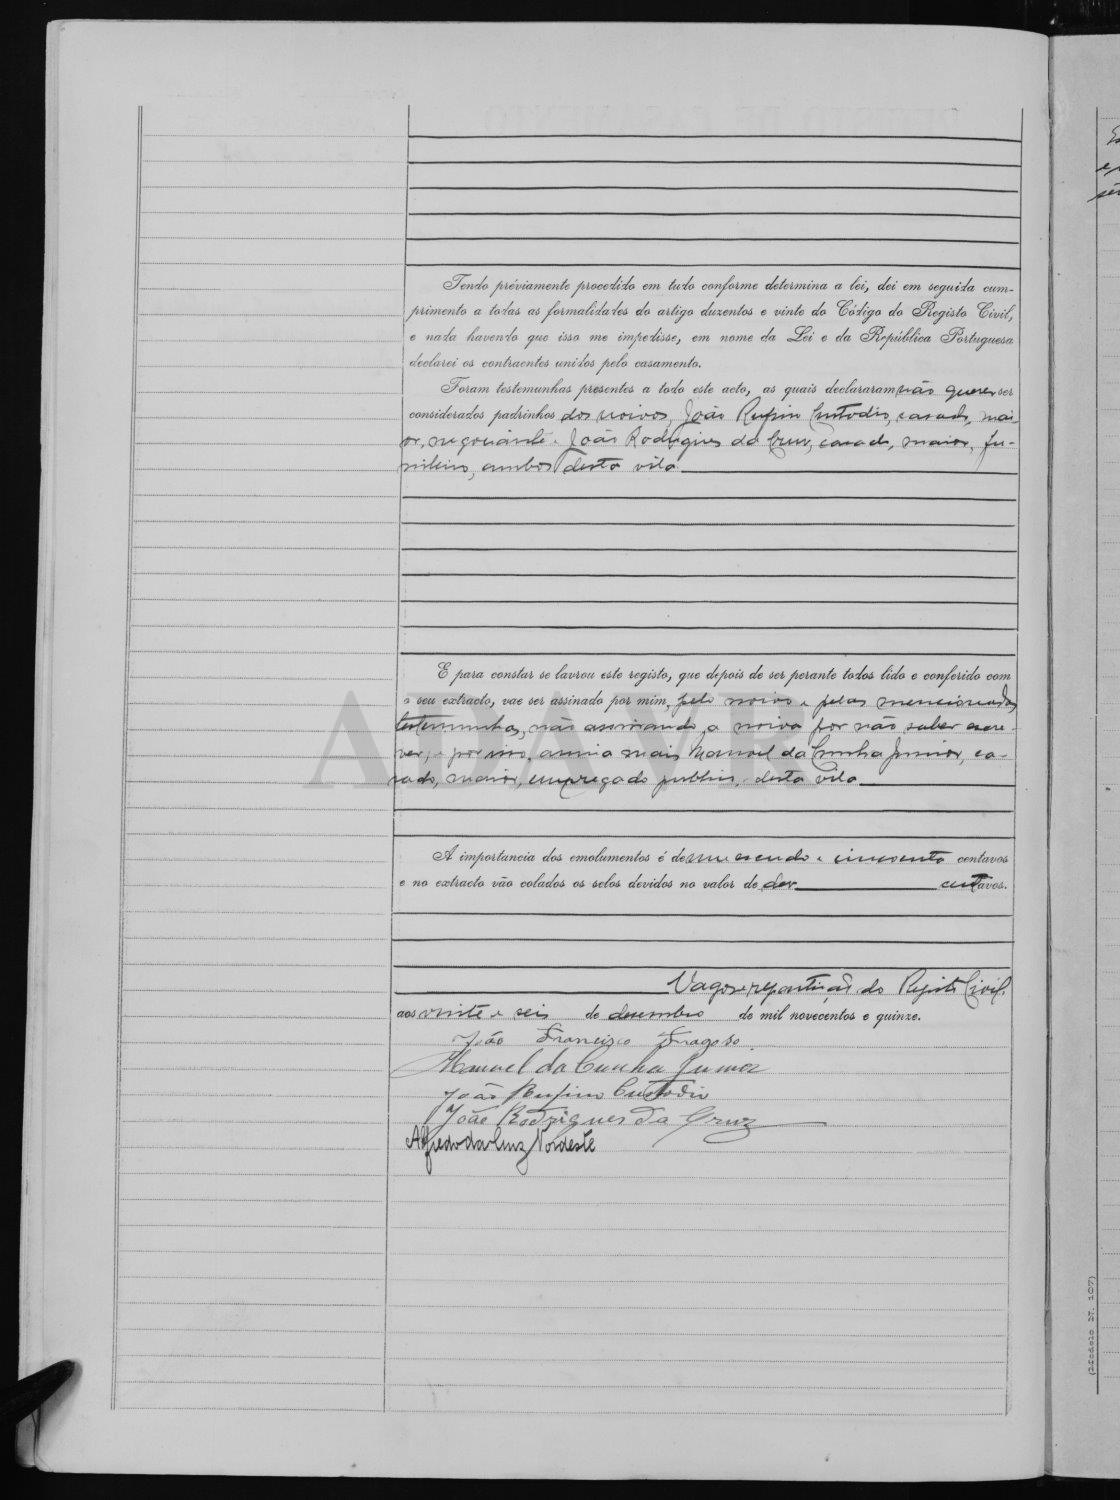 Tendo préviamente procedido em tudo conforme determina a lei, dei em seguida cum-
primento a todas as formalidades do artigo duzentos e vinte do Código do Registo Civil,
e nada havendo que isso me impedisse, em nome da Lei e da República Portuguesa
declarei os contraentes unidos pelo casamento.
Foram testemunhas presentes a todo este acto, as quais declararam não querer ser
considerados padrinhos dos noivos, João Rufino Custodio, casado, mai-
or, negociante e João Rodrigues da Cruz, casado, maior, fu-
nileiro, ambos desta vila
E para constar se lavrou este registo, que depois de ser perante todos lido e conferido com
o seu extracto, vae ser assinado por mim, pelo noivo e pelas mencionadas
testemunhas, não assinando a noiva por não saber escre-
ver, e por isso, assina mais Manoel da Cunha Junior, ca-
sado, maior, empregado publico, desta vila
ALAVR
A importancia dos emolumentos é de um escudo e cincoenta centavos
e no extracto vão colados os selos devidos no valor de dez centavos.
Vagos e repartição do Registo Civil,
aos vinte e seis de desembro de mil novecentos e quinze.
João Francisco Fragoso
Manuel da Cunha Junior
João Rufino Custodio
João Rodrigues da Cruz
Alfredo da Cruz Nordeste
(Modelo N. 107)